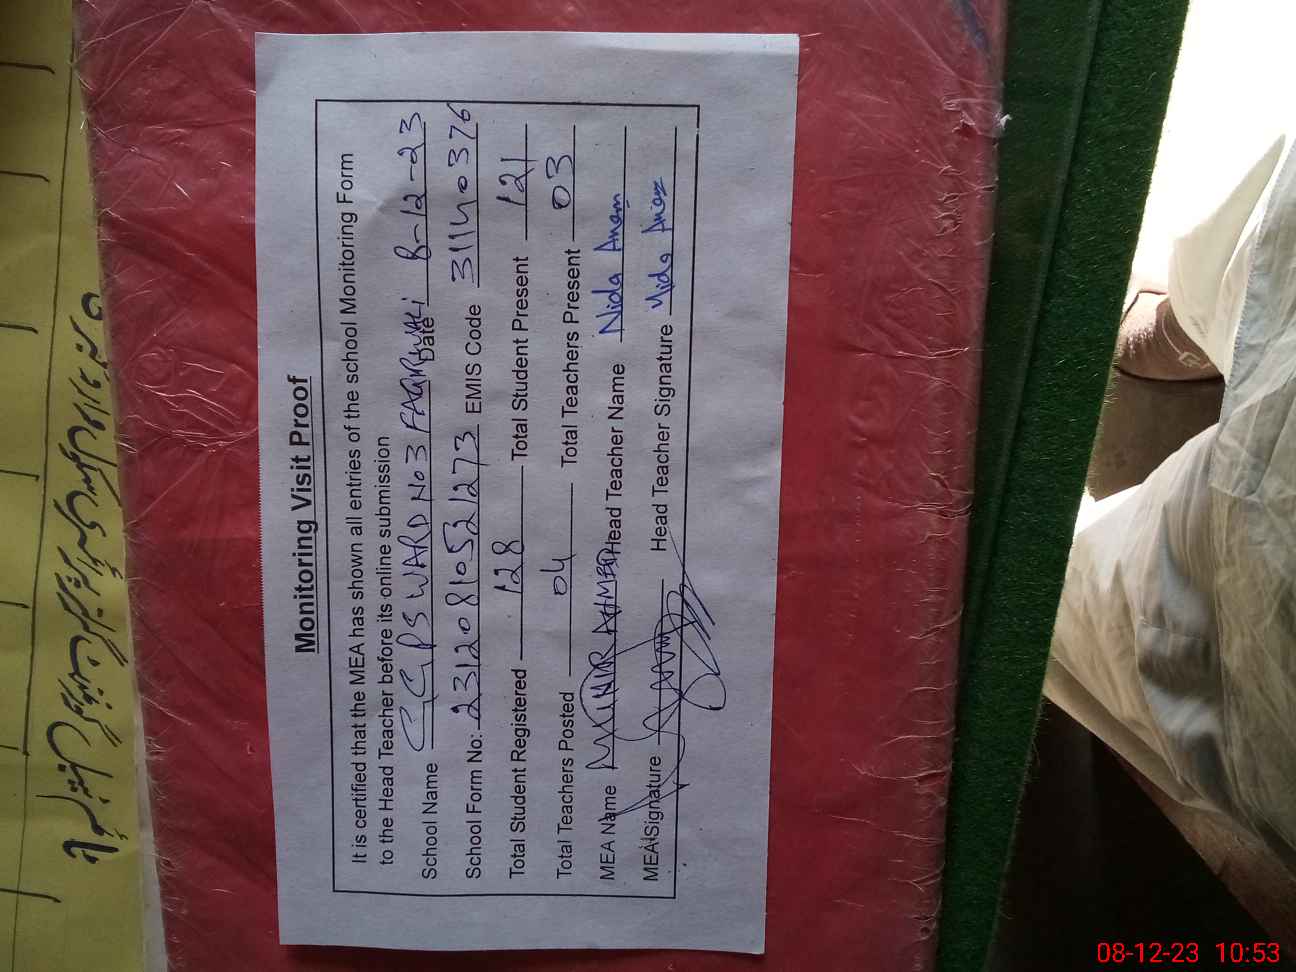 Monitoring Visit Proof
It is certified that the MEA has shown all entries of the school Monitoring Form
to the Head Teacher before its online submission
School Name GGPS WARD NO 3 FAQIRWALI Date 8-12-23
School Form No: 23120810521273 EMIS Code 31140376
Total Student Registered 128 Total Student Present 121
Total Teachers Posted 04 Total Teachers Present 03
MEA Name MUNIR AHMED Head Teacher Name Nida Anam
MEA Signature Head Teacher Signature Nida
08-12-23 10:53